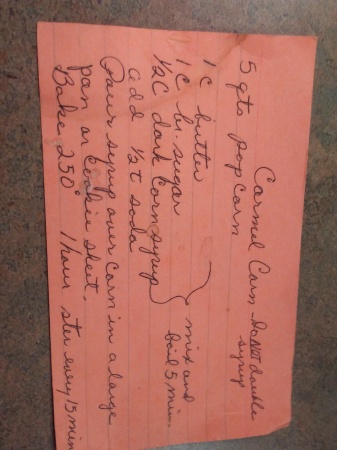 Carmel Corn - Do NOT double
syrup
5 qts popcorn
1 C butter
1 C br. sugar
1/2 C dark corn syrup
mix and
boil 5 min.
add 1/2 t soda
Pour syrup over corn in a large
pan or cookie sheet.
Bake 250° 1 hour ster every 15 min